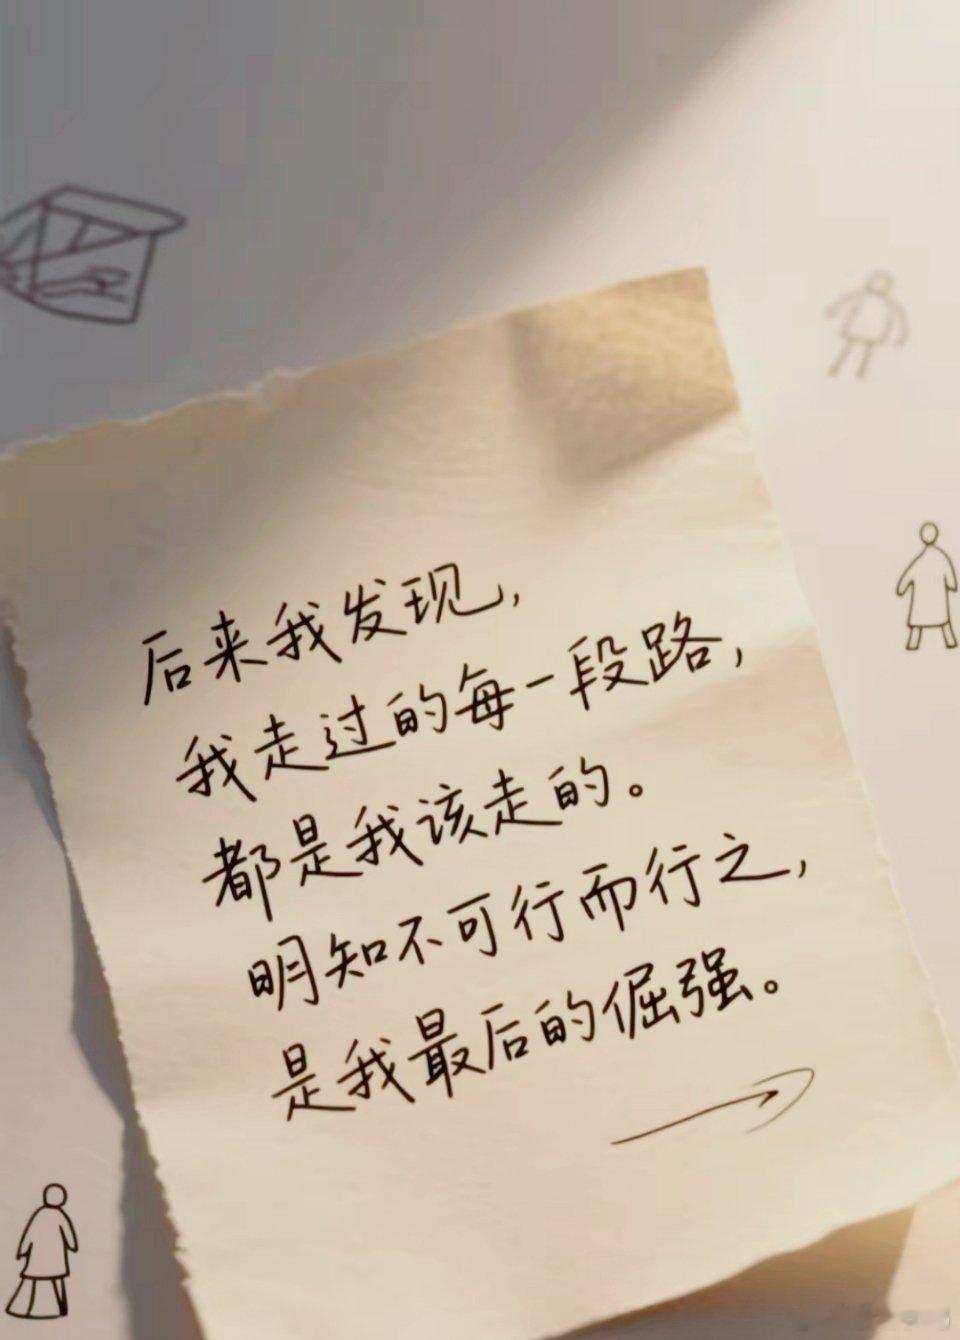 后来我发现，
我走过的每一段路，
都是我该走的。
明知不可行而行之，
是我最后的倔强。